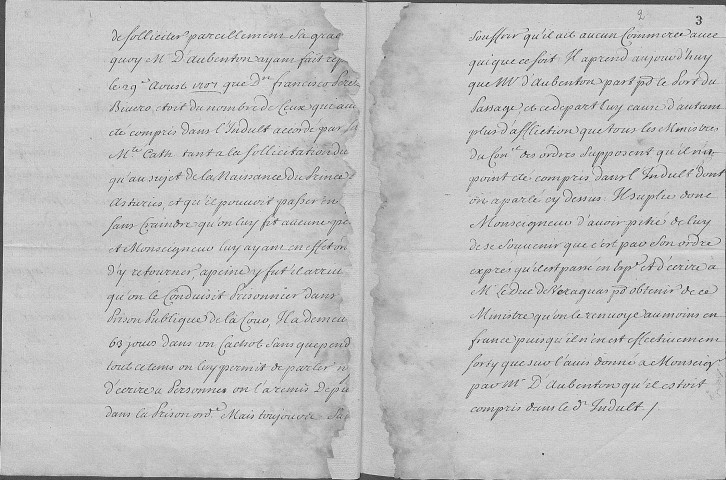 de solliciter pareillement Sa gra
quoy M. D'aubenton ayant fait rep
le 29e Aoust 1707 que Dn francisco
Rivero, etoit du nombre de Ceux que
ete compris dans l'Indult accordé par
M.te Cath. tant a la sollicitation du
qu'au sujet de la Naissance du Prince
Asturies, et qu'il pouvoit passer en
sans Craindre qu'on luy fit aucune pe
et Monseigneur luy ayant en effet
d'y retourner, a peine y fut il arrivé
qu'on le Conduisit Prisonnier dans
Prison Publique de la Cour, Il a demeu
63 jours dans un Cachot sans que pend
tout ce tems on luy permit de parler n
d'ecrire a Personne on l'a remis Depuis
dans la Prison ord.re Mais toujours
2
3
souffrir qu'il ait aucun Commerce avec
qui que ce soit. Il aprend aujourd'huy
que Mr. d'aubenton part pd le Port du
Passage, et ce depart luy cause d'autant
plus d'affliction que tous les Ministres
du Con.el des ordres supposent qu'il n'a
point ete compris dans l'Indult dont
on a parlé cy dessus. Il suplie donc
Monseigneur d'avoir pitié de luy
de se souvenir que c'est par Son ordre
exprès qu'il est passé en Esp.e et d'ecrire à
M. le Duc de Veraguas pd obtenir de ce
Ministre qu'on le renvoye au moins en
france puisqu'il n'en est effectivement
sorty que sur l'avis donné a Monseigr
par Mr. D'Aubenton qu'il estoit
compris dans le d. Indult /